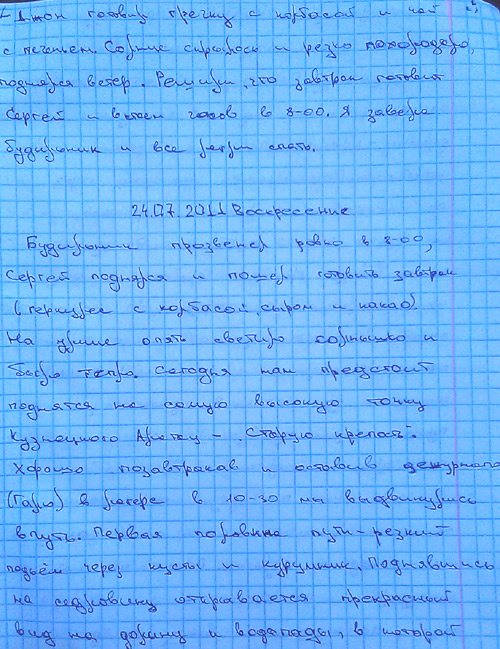 Антон готовит гречку с колбасой и чай
с печеньем. Солнце скрылось и резко похолодало,
поднялся ветер. Решили, что завтрак готовит
Сергей и встаем часов в 8-00. Я завела
будильник и все легли спать.
24.07.2011 Воскресение
Будильник прозвенел ровно в 8-00,
Сергей поднялся и пошел готовить завтрак
(геркулес с колбасой, сыром и какао).
На улице опять светило солнышко и
было тепло. Сегодня нам предстоит
поднятся на самую высокую точку
Кузнецкого Алатау - "Старую крепость".
Хорошо позавтракав и оставив дежурного
(Галю) в лагере в 10-30 мы выдвинулись
в путь. Первая половина пути - резкий
подъём через кусты и курумник. Поднявшись
на седловину открывается прекрасный
вид на долину и водопады, в которой